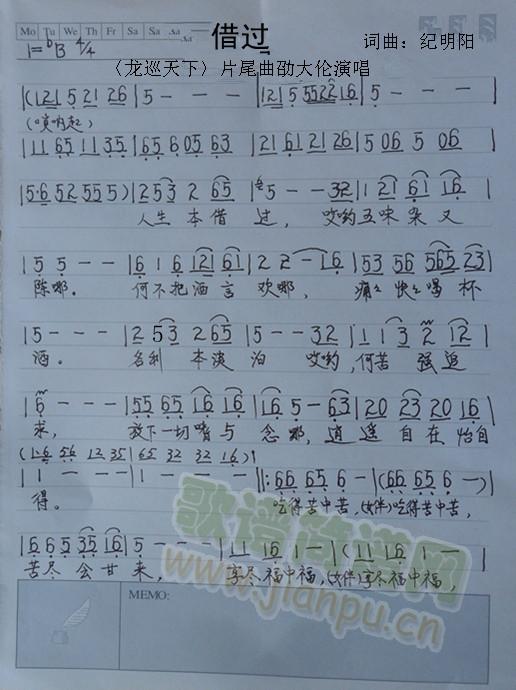 Mo Tu We Th Fr Sa Su
借过
词曲：纪明阳
1=♭B 4/4
〈龙巡天下〉片尾曲劭大伦演唱
|(121 5 21 26 | 5 - - - | 121 5 5522 16 | 5 - - - |
(唢呐起)
| 11 65 11 35 | 65 6 05 63 | 21 61 21 26 | 5 06 5 06 |
| 5·6 52 55 5) | 2 53 2 65 | 5 - - 32 | 1 21 61 16 |
人生本借过，哎哟五味杂又
| 5 5 - - | 6 1 6 121 61 | 2 2 - 16 | 53 56 565 23 |
陈哪。何不把酒言欢哪，痛痛快快喝杯
| 5 - - - | 2 53 2 65 | 5 - - 32 | 1 1 3 2 12 |
酒。名利本淡泊哎哟，何苦强追
| 6 - - - | 55 65 16 16 | 16 5 - 63 | 20 23 20 16 |
求，放下一切嗔与念哪，逍遥自在怡自
(1·6 56 12 35 | 65 32 32 16)
| 1 - - - | 1 - - - ||: 66 65 6 - | (66 65 6 -) |
得。吃得苦中苦，(女伴)吃得苦中苦，
| 6 6 5 35 16 | 5 - - - | 11 16 1 - | (11 16 1 -
苦尽会甘来，享尽福中福，(女伴)享尽福中福，
MEMO:
歌谱简谱网
www.jianpu.cn